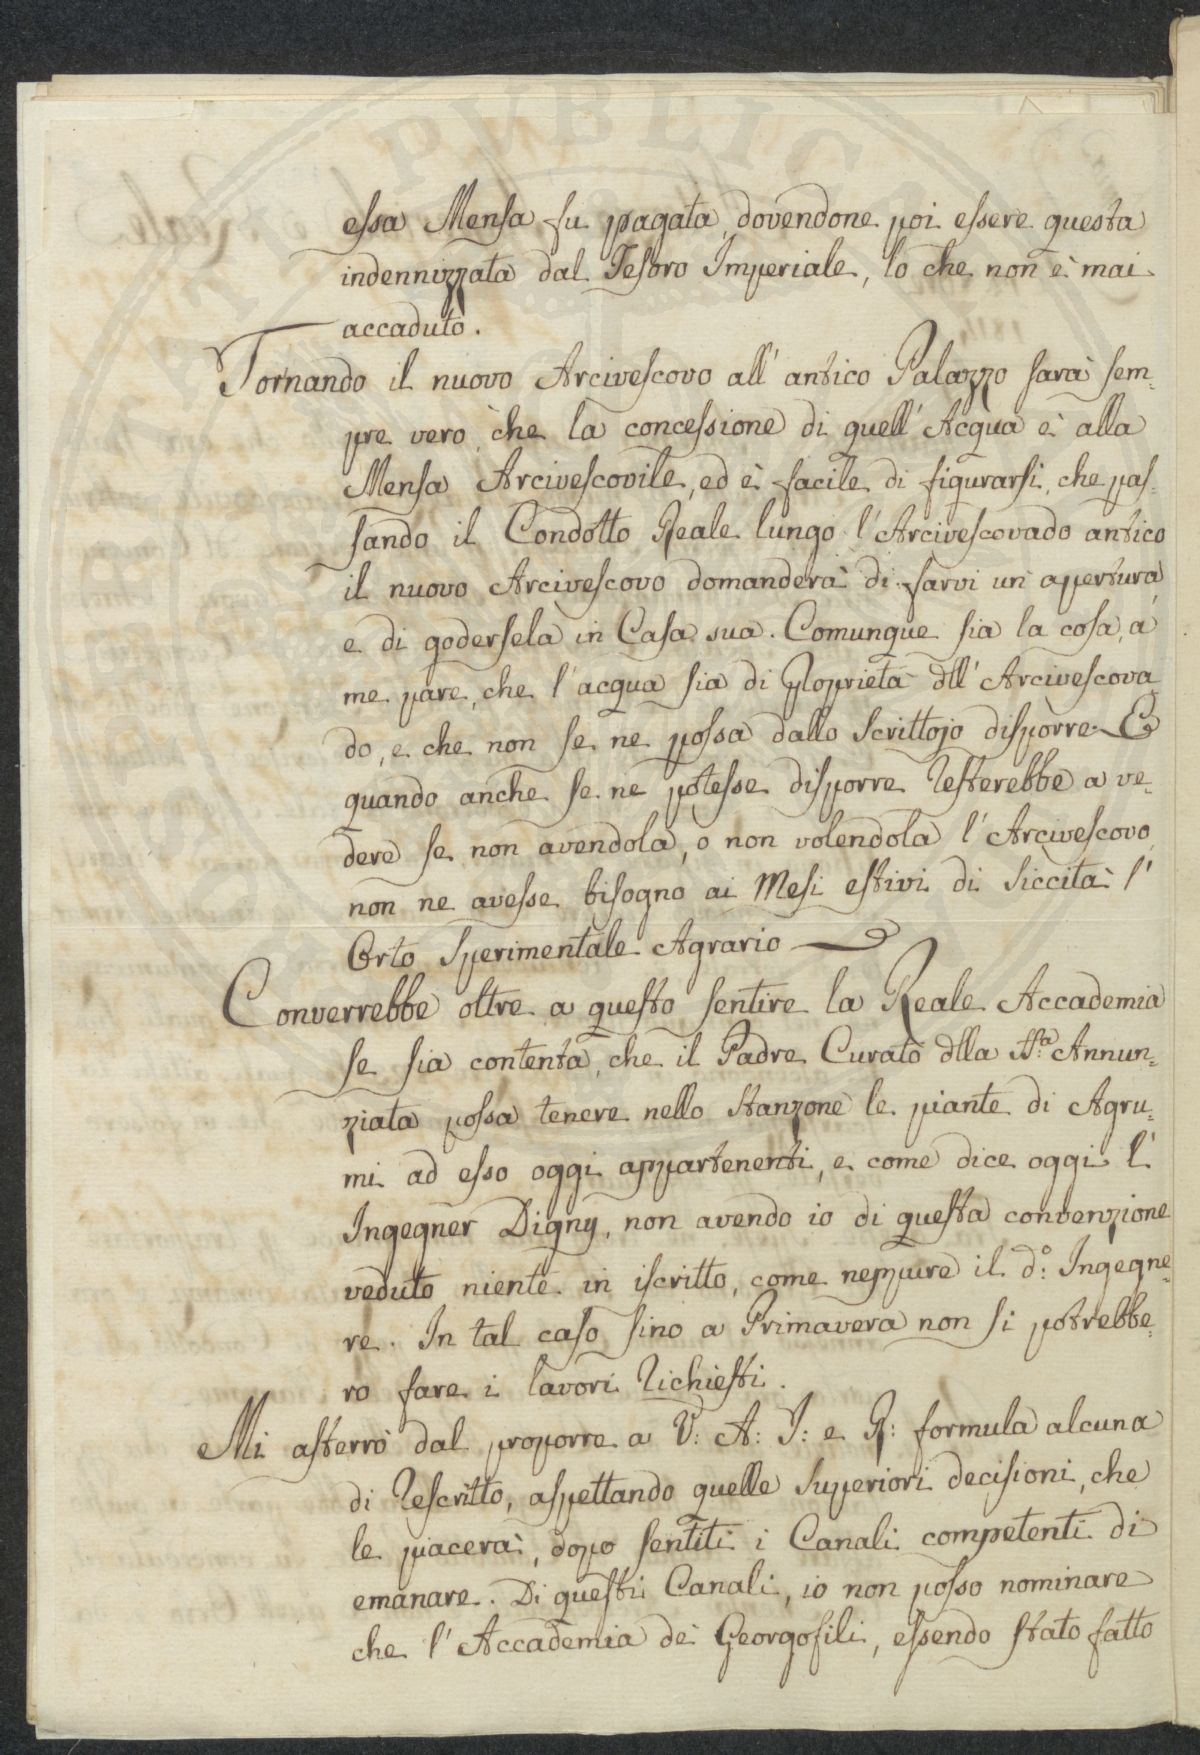 essa Mensa fu pagata, dovendone poi essere questa
indennizzata dal Tesoro Imperiale, lo che non è mai
accaduto.
Tornando il nuovo Arcivescovo all' antico Palazzo sarà sem=
pre vero, che la concessione di quell' Acqua è alla
Mensa Arcivescovile, ed è facile di figurarsi, che pas=
sando il Condotto Reale lungo l'Arcivescovado antico
il nuovo Arcivescovo domanderà di farvi un' apertura,
e di godersela in Casa sua. Comunque sia la cosa, a
me pare, che l'acqua sia di Proprietà dll' Arcivescova
do, e che non se ne possa dallo Scrittojo disporre. E
quando anche se ne potesse disporre resterebbe a ve=
dere se non avendola, o non volendola l'Arcivescovo,
non ne avesse bisogno ai Mesi estivi di siccità l'
Orto Sperimentale Agrario
Converrebbe oltre a questo sentire la Reale Accademia
se sia contenta, che il Padre Curato dlla SS.ta Annun=
ziata possa tenere nello Stanzone le piante di Agru=
mi ad esso oggi appartenenti, e come dice oggi l'
Ingegner Digny, non avendo io di questa convenzione
veduto niente in iscritto, come neppure il d.o Ingegne=
re. In tal caso sino a Primavera non si potrebbe=
ro fare i lavori richiesti.
Mi asterrò dal proporre a V: A: I: e R: formula alcuna
di rescritto, aspettando quelle Superiori decisioni, che
le piacerà, dopo sentiti i Canali competenti di
emanare. Di questi Canali, io non posso nominare
che l'Accademia de' Georgofili, essendo stato fatto
PUBLIC